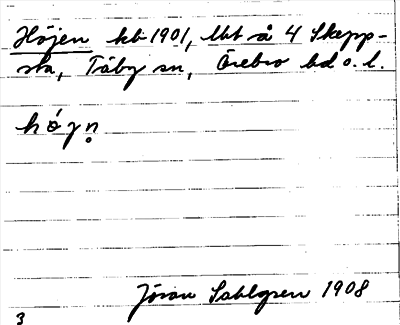 Höjen kb 1901, lht å 4 Skepp-
sta, Täby sn, Örebro hd o. l.
hó̵jn̥
Jöran Sahlgren 1908
3